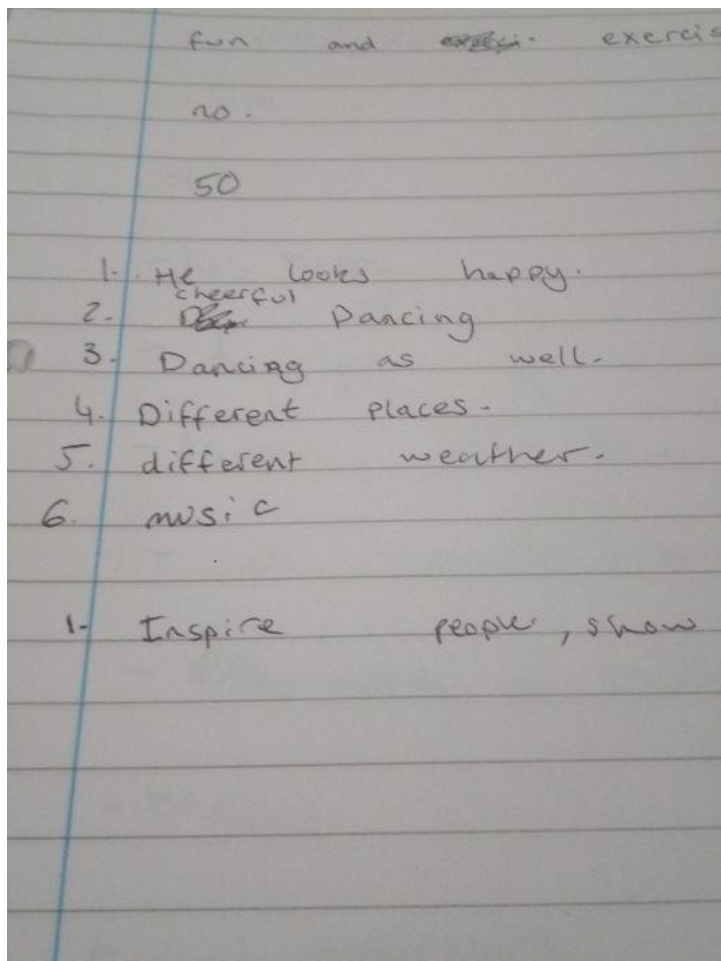 fun and exercis
no.
50
1. He looks happy.
2. cheerful Dancing
3. Dancing as well.
4. Different places.
5. different weather.
6. music
1. Inspire people, show